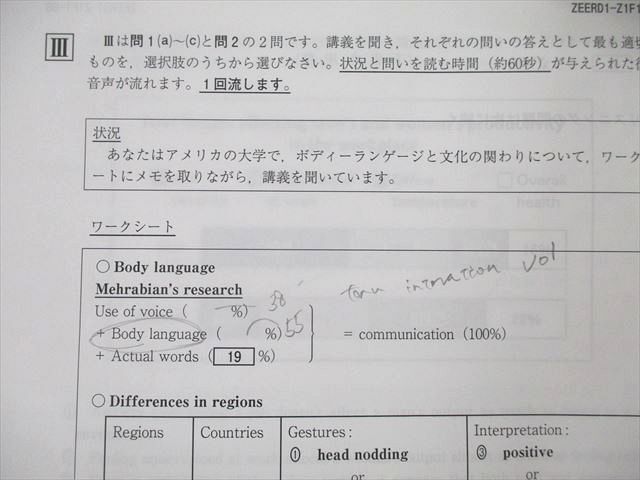 ZEERD1-Z1F1
III Ⅲは問1(a)～(c)と問2の2問です。講義を聞き，それぞれの問いの答えとして最も適切
ものを，選択肢のうちから選びなさい。状況と問いを読む時間（約60秒）が与えられた後
音声が流れます。1回流します。
状況
あなたはアメリカの大学で，ボディーランゲージと文化の関わりについて，ワーク
ートにメモを取りながら，講義を聞いています。
ワークシート
○ Body language
Mehrabian's research
Use of voice ( %) 38
+ Body language ( %) 55 = communication (100%)
+ Actual words ( 19 %)
vol
○ Differences in regions
Regions Countries Gestures: Interpretation:
① head nodding ③ positive
or or